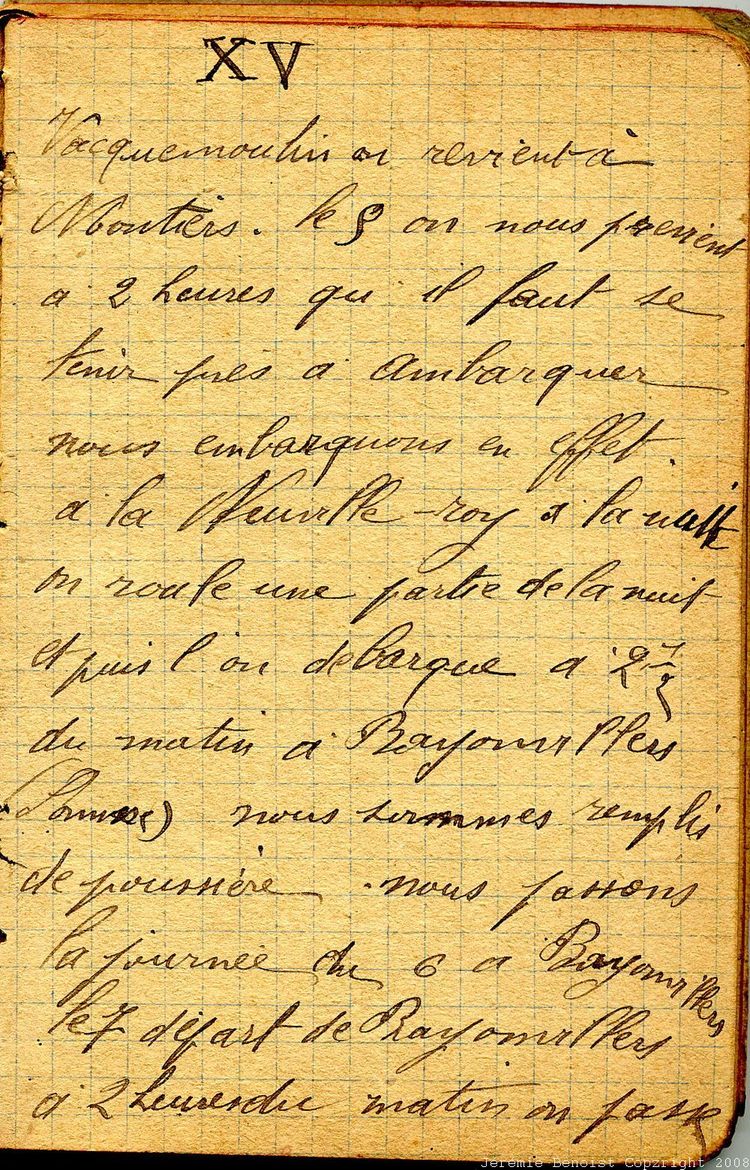 XV
Vacquemoulin on revient à
Moutiers. le 5 on nous previent
a 2 heures qu il faut se
tenir près a ambarquer
nous embarquons en effet
a la Neuville-roy a la nuit
on roule une partie de la nuit
et puis l on debarque a 2 1/2
du matin a Bayonvillers
(Somme) nous sommes remplis
de poussière. nous passons
la journée du 6 a Bayonvillers
le 7 départ de Bayonvillers
a 2 heures du matin on passe
Jeremie Benoist Copyright 2008